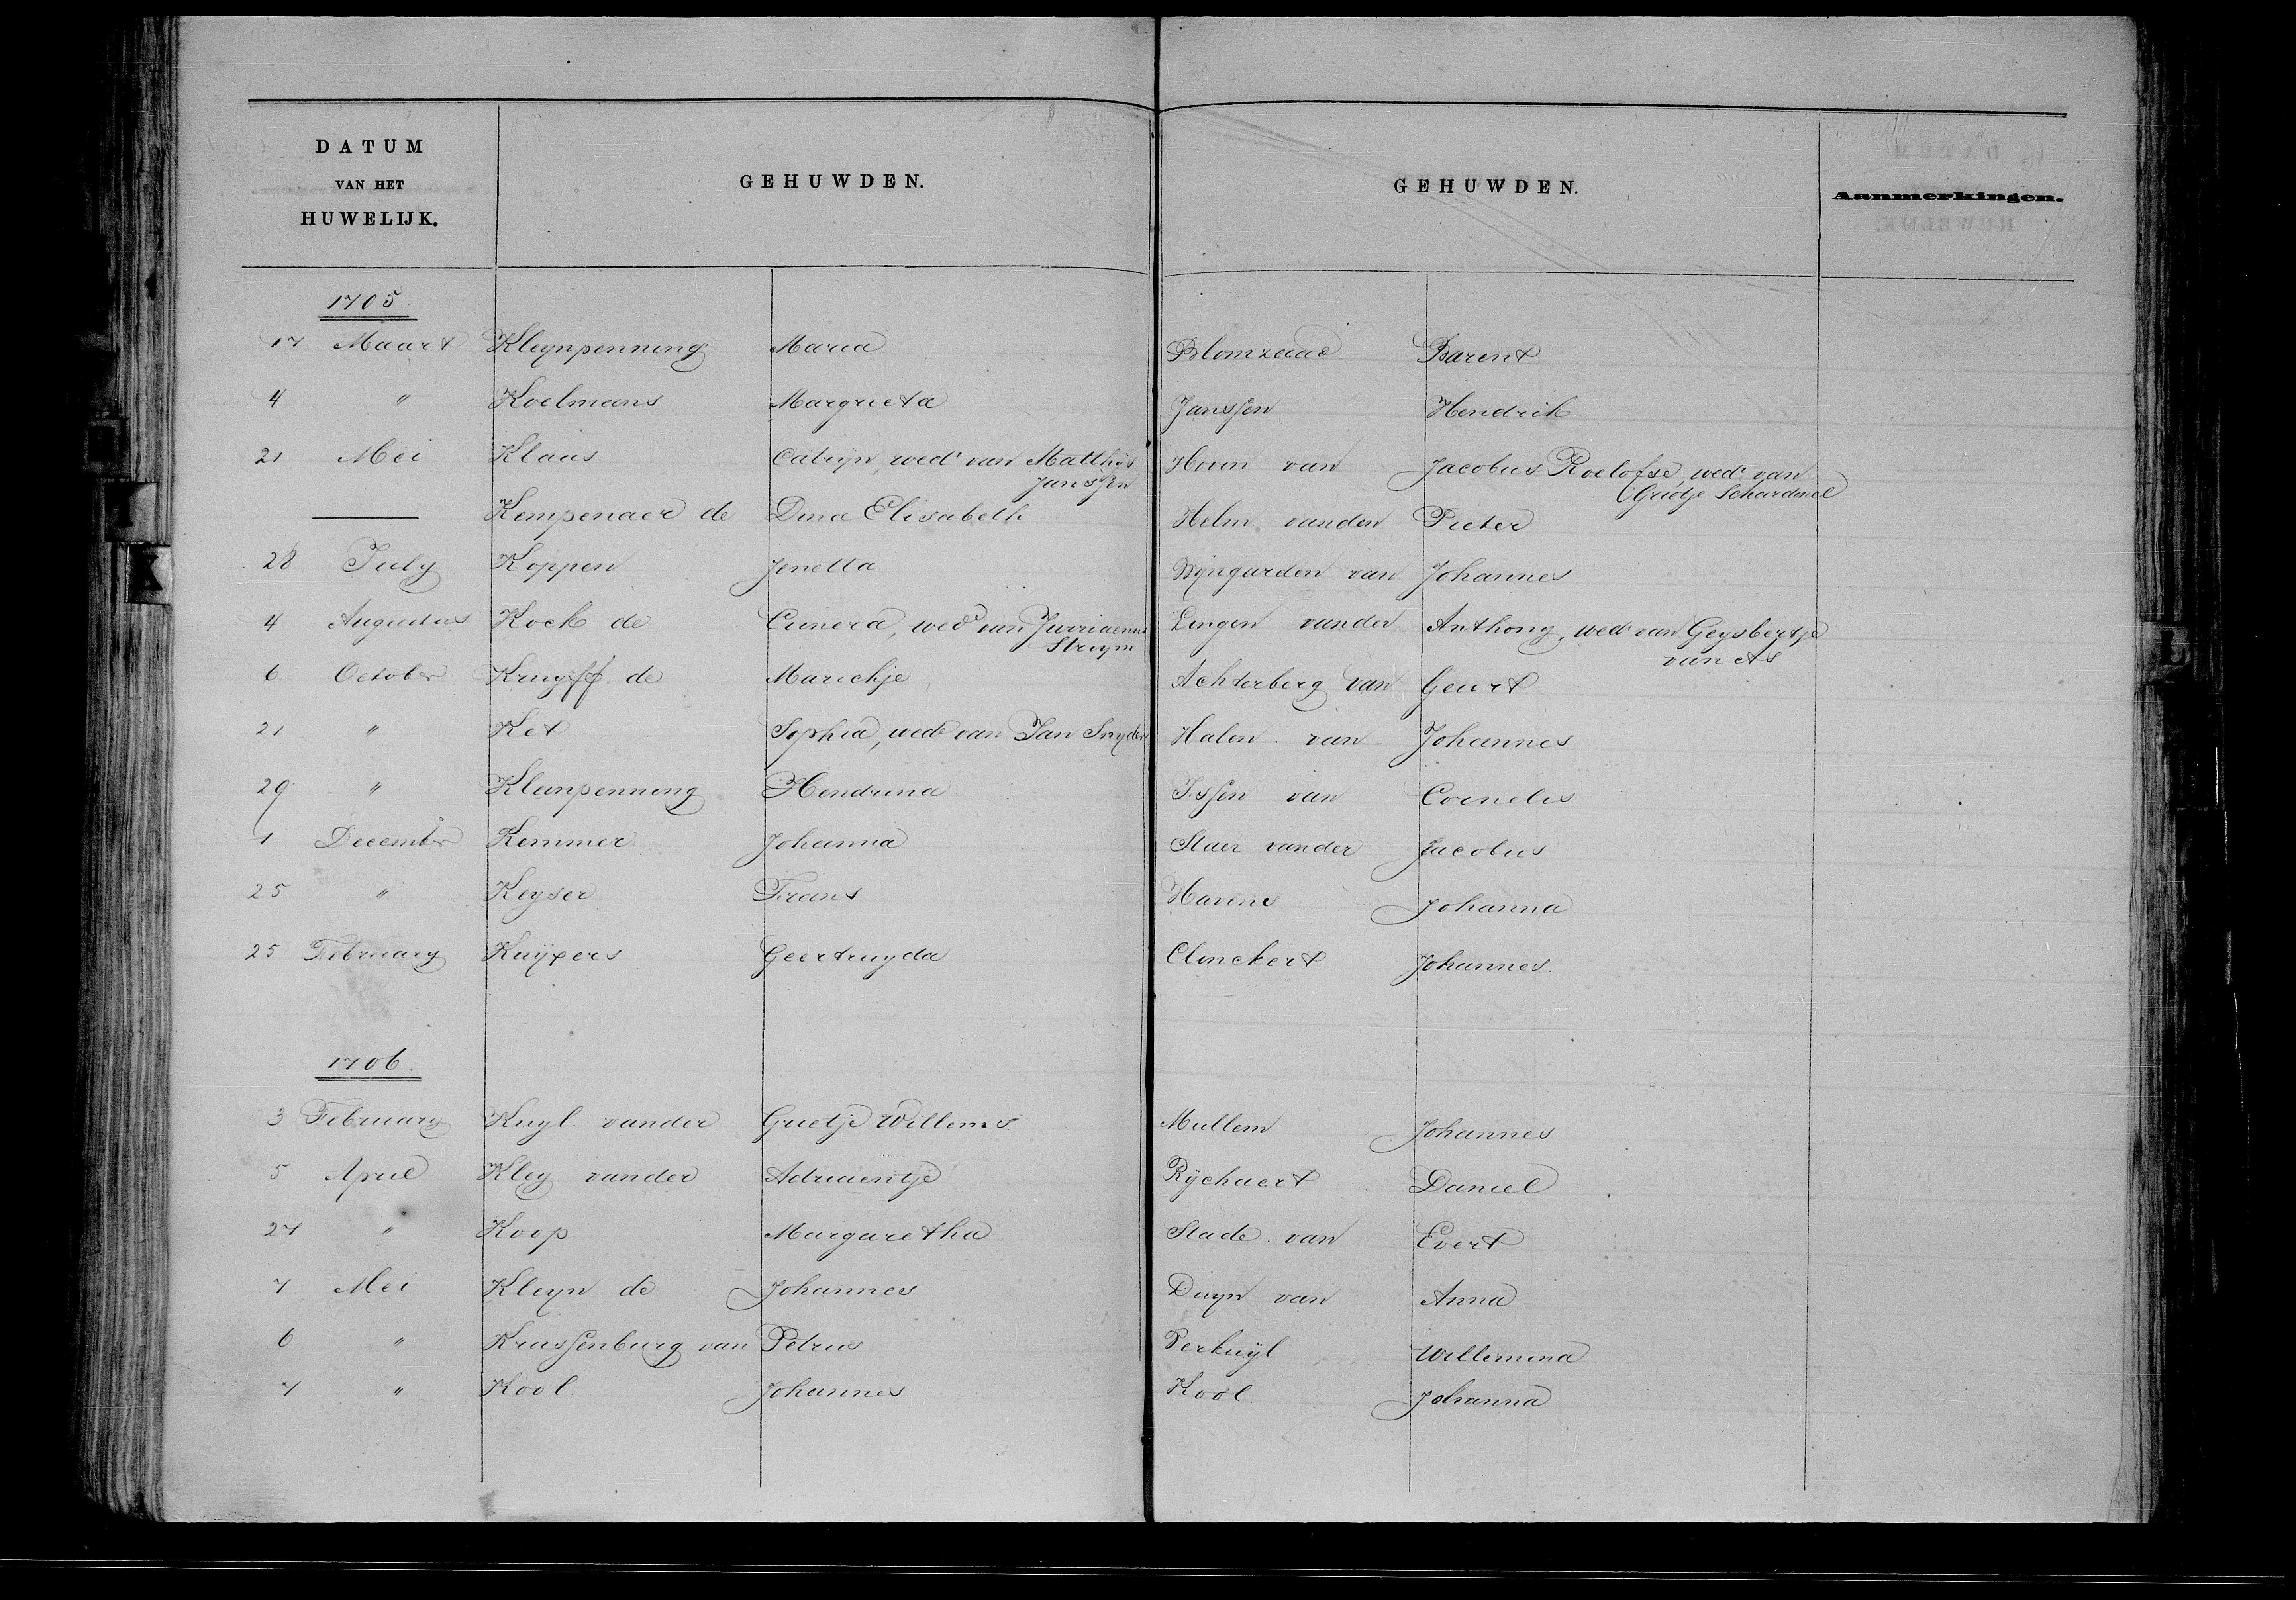 DATUM
VAN HET
HUWELIJK.
GEHUWDEN.
GEHUWDEN.
Aanmerkingen.
1705
17 Maart Kleynpenning Maria Blomzaad Barent
4 " Koelmans Margrieta Janssen Hendrik
21 Mei Klaas Catryn wed van Matthijs Hoven van Jacobus Roelofse, wed van
Janssen Grietje
—— Kempenaer de Dina Elisabeth Helm vanden Pieter
28 July Koppen Jenetta Wijngarden van Johannes
4 Augustus Kock de Cunera, wed van Jurriaenus Lingen vander Anthony, wed van Geysbertje
Struym van As
6 October Kruyff de Marichje Achterberg van Geurt
21 " Ket Sophia, wed van Jan Snyders Halen van Johannes
29 " Kleinpenning Hendrina Issen van Cornelis
1 December Kemmer Johanna Staer vander Jacobus
25 " Keyser Frans Havens Johanna
25 February Kuypers Geertruyda Clinckert Johannes
1706
3 February Kuyl vander Grietje Willems Mullem Johannes
5 April Kley vander Adriaentje Rychaert Daniel
27 " Koop Margaretha Stade van Evert
7 Mei Kleyn de Johannes Duyn van Anna
6 " Krussenburg van Petrus Perkuyl Willemina
7 " Kool Johannes Kool Johanna